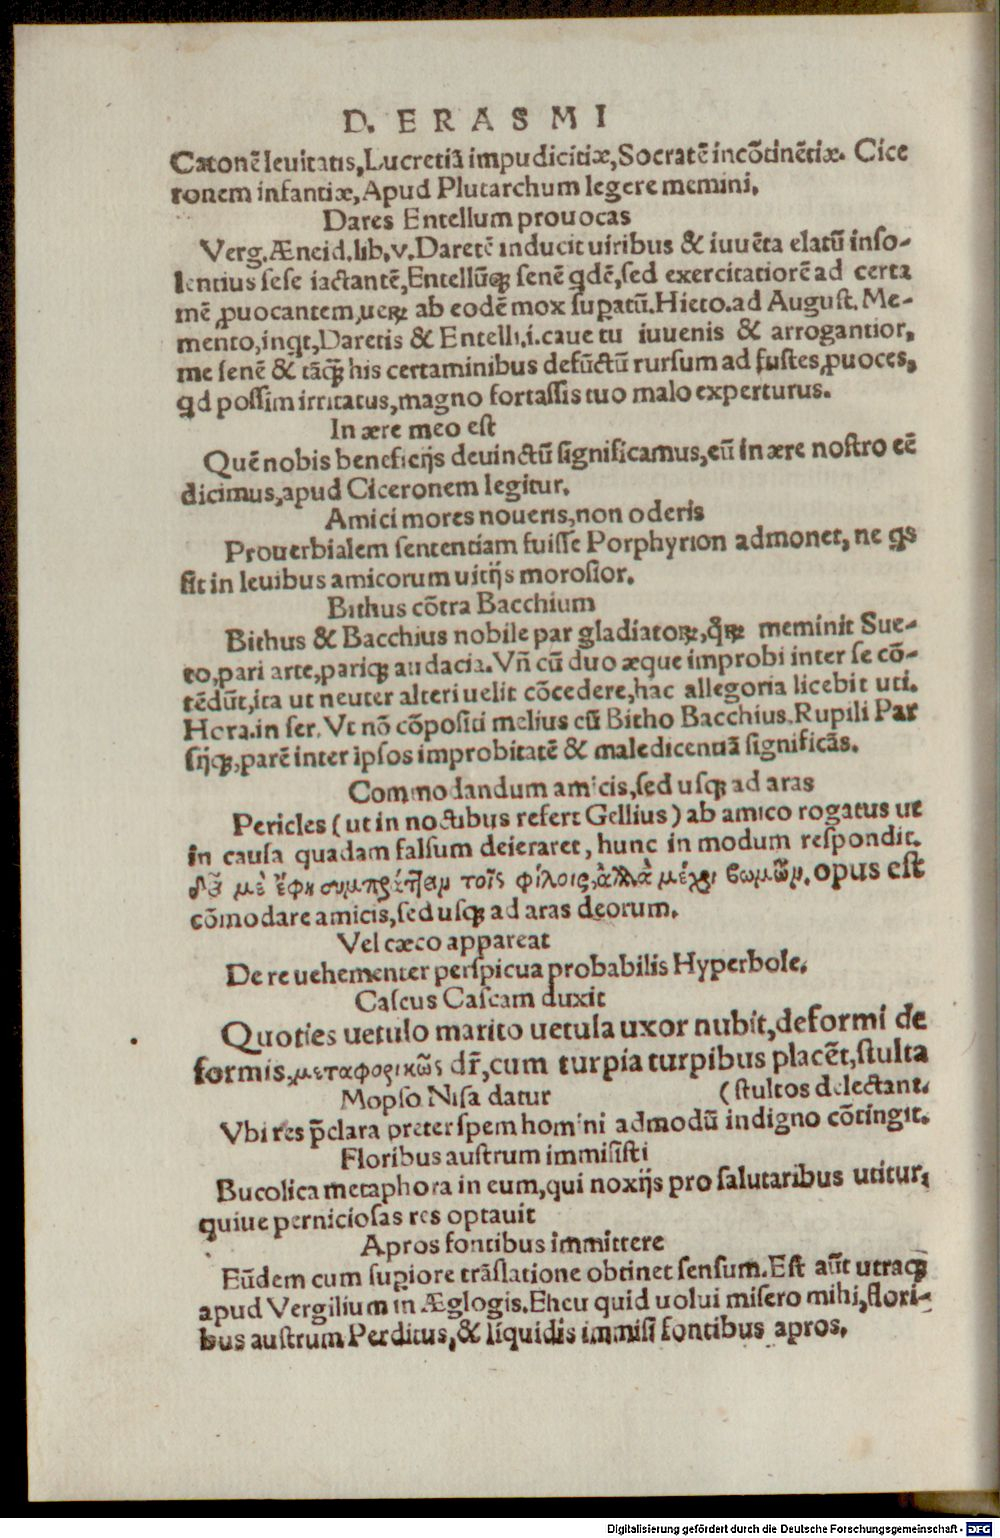 D. ERASMI
Catonē leuitatis, Lucretiā impudicitiæ, Socratē incōtinētiæ. Cice
ronem infantiæ, Apud Plutarchum legere memini.
Dares Entellum prouocas
Verg. Æneid. lib. v. Daretē inducit uiribus & iuuēta elatū inso-
lentius sese iactantē, Entellūqꝫ senē qdē, sed exercitatiorē ad certa
mē ꝓuocantem, ueꝝ ab eodē mox supatū. Hiero. ad August. Me-
mento, inqt, Daretis & Entelli. i. caue tu iuuenis & arrogantior,
me senē & tāqꝫ his certaminibus defūctū rursum ad fustes ꝓuoces,
qd possim irritatus, magno fortassis tuo malo experturus.
In ære meo est
Quē nobis beneficijs deuinctū significamus, eū in ære nostro eē
dicimus, apud Ciceronem legitur.
Amici mores noueris, non oderis
Prouerbialem sententiam fuisse Porphyrion admonet, ne qs
sit in leuibus amicorum uitijs morosior.
Bithus cōtra Bacchium
Bithus & Bacchius nobile par gladiatoꝝ, qꝝ meminit Sue-
to, pari arte, pariqꝫ audacia. Vn̄ cū duo æque improbi inter se cō-
tēdūt, ita ut neuter alteri uelit cōcedere, hac allegoria licebit uti.
Hora. in ser. Vt nō cōpositi melius cū Bitho Bacchius. Rupili Par
sijqꝫ, parē inter ipsos improbitatē & maledicentiā significās.
Commodandum amicis, sed usqꝫ ad aras
Pericles (ut in noctibus refert Gellius) ab amico rogatus ut
in causa quadam falsum deieraret, hunc in modum respondit.
δεῖ μὲ ἔφη συμπράτ]ειν τοῖς φίλοις, ἀλλὰ μέχρι βωμῶν. opus est
cōmodare amicis, sed usqꝫ ad aras deorum.
Vel cæco appareat
De re uehementer perspicua probabilis Hyperbole.
Cascus Cascam duxit
Quoties uetulo marito uetula uxor nubit, deformi de
formis, μεταφορικῶς dr̄, cum turpia turpibus placēt, stulta
Mopso Nisa datur (stultos delectant.
Vbi res p̄clara preter spem homini admodū indigno cōtingit.
Floribus austrum immisisti
Bucolica metaphora in eum, qui noxijs pro salutaribus utitur,
quiue perniciosas res optauit
Apros fontibus immittere
Eūdem cum supiore trāslatione obtinet sensum. Est aūt utraqꝫ
apud Vergilium in Æglogis. Eheu quid uolui misero mihi, flori-
bus austrum Perditus, & liquidis immisi fontibus apros.
Digitalisierung gefördert durch die Deutsche Forschungsgemeinschaft - DFG